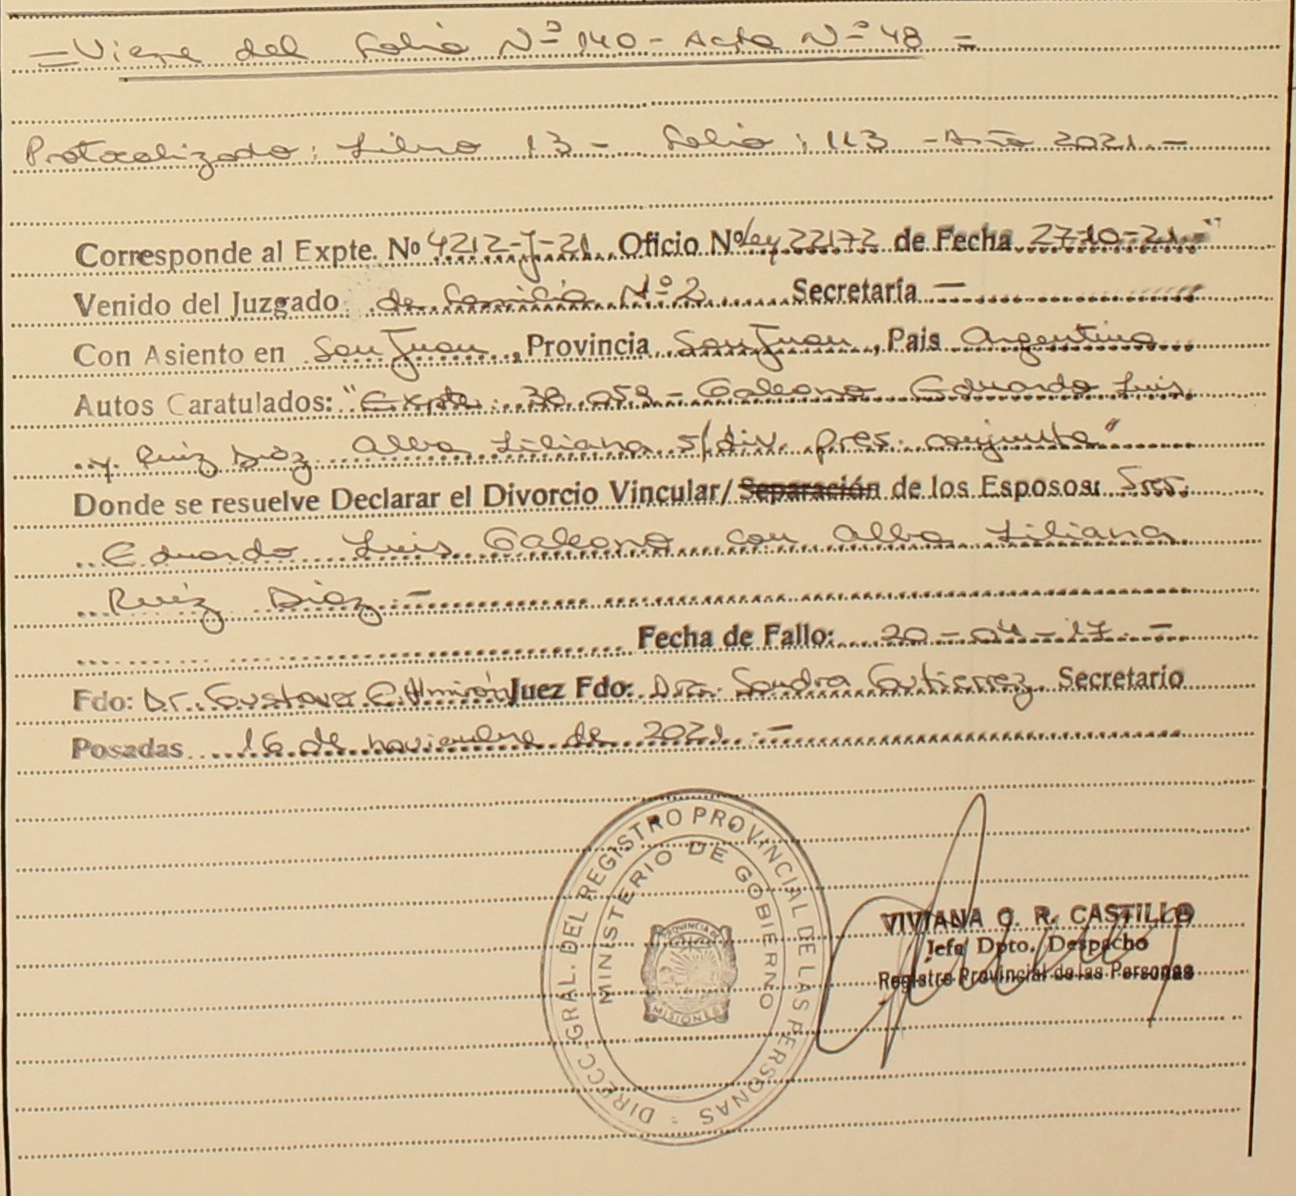 = Viene del Folio Nº 140 - Acta Nº 48 =
Protocolizado: Libro 13 - Folio: 113 - Año 2021. -
Corresponde al Expte. Nº 4212-J-21 Oficio Nº Ley 22172 de Fecha 27-10-21
Venido del Juzgado de Familia Nº 2 Secretaría -
Con Asiento en San Juan, Provincia San Juan, País Argentina
Autos Caratulados: "Expte. 38.059 - Galeano Eduardo Luis
y Ruiz Diaz Alba Liliana s/div. pres. conjunta"
Donde se resuelve Declarar el Divorcio Vincular/ Separación de los Esposos: Sres.
Eduardo Luis Galeano con Alba Liliana
Ruiz Diaz -
Fecha de Fallo: 20-04-17. -
Fdo: Dr. Gustavo C. Almirón Juez Fdo: Dra. Sandra Gutierrez Secretario
Posadas 16 de noviembre de 2021. -
DIRECC. GRAL. DEL REGISTRO PROVINCIAL DE LAS PERSONAS
MINISTERIO DE GOBIERNO
PROVINCIA DE
MISIONES
VIVIANA C. R. CASTILLO
Jefa Dpto. Despacho
Registro Provincial de las Personas